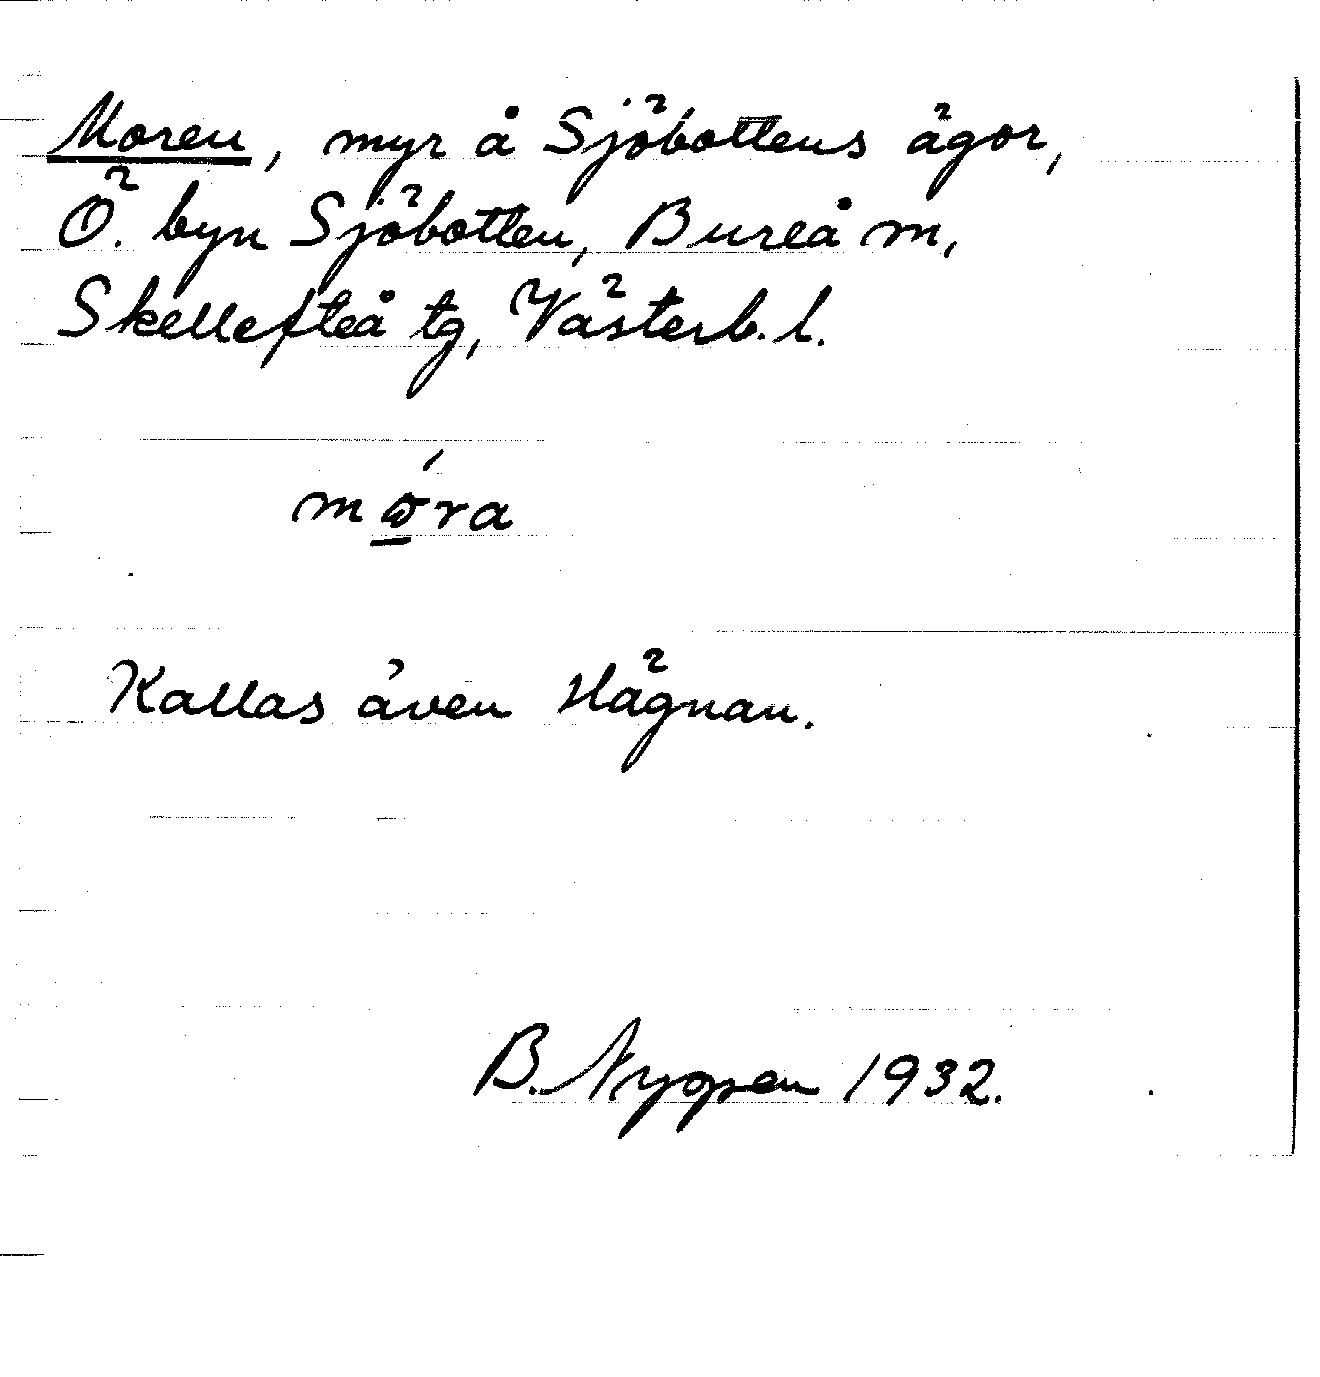 Moren, myr å Sjöbottens ägor,
Ö. byn Sjöbotten, Bureå m,
Skellefteå tg, Västerb. l.
Kallas även Hägnan.
B. 1932.